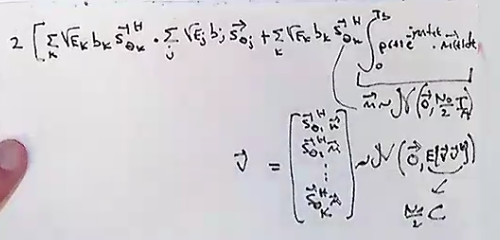 2 [ Σ_k √E_k b_k s⃗_{θ_k}^H · Σ_j √E_j b_j s⃗_{θ_j} + Σ_k √E_k b_k s⃗_{θ_k}^H ∫_0^{T_b} p(t) e^{ · n⃗(t) dt
n⃗ ~ N(0⃗, N_0/2 I
v⃗ = [ s⃗_{θ_1}^H n⃗
s⃗_{θ_2}^H n⃗
⋮
s⃗_{θ_K}^H n⃗ ] ~ N(0⃗, E[v⃗ v⃗^H])
N_0/2 C